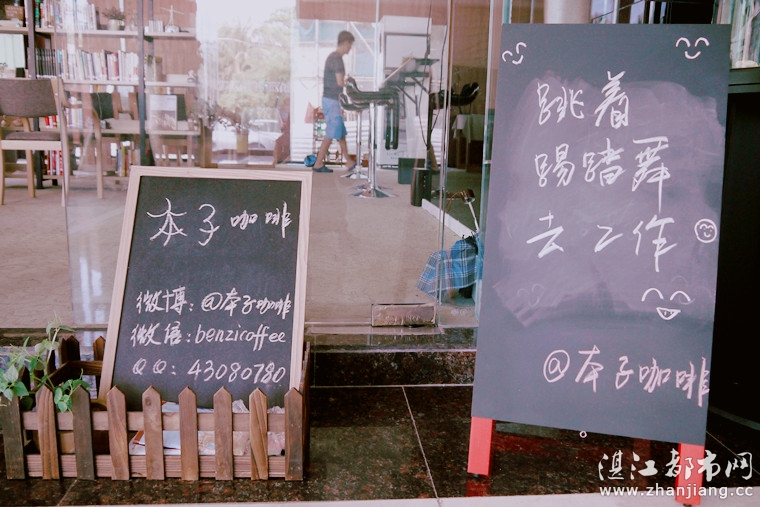 本子咖啡
微博:@本子咖啡
微语:benzicoffee
QQ:43080780
跳着
踢踏舞
去工作
@本子咖啡
湛江都市网
www.zhanjiang.cc